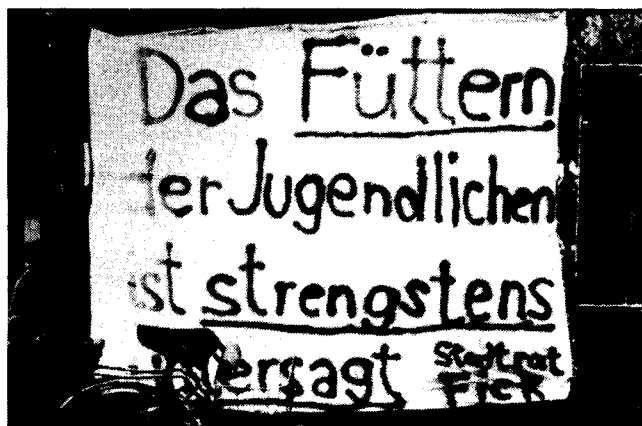 Das Füttern
der Jugendlichen
ist strengstens
untersagt Stadtrat